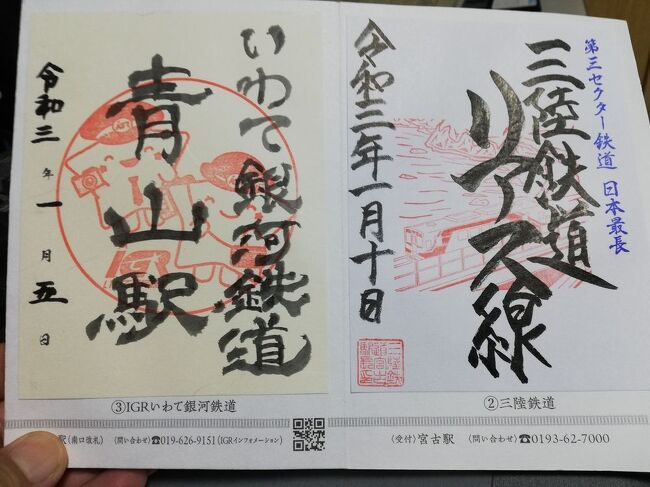 第三セクター鉄道 日本最長
三陸鉄道
リアス線
令和三年一月十日
②三陸鉄道
〈受付〉宮古駅 〈問い合わせ〉☎0193-62-7000
いわて銀河鉄道
青山駅
令和三年一月五日
③IGRいわて銀河鉄道
駅(南口改札) 〈問い合わせ〉☎019-626-9151(IGRインフォメーション)